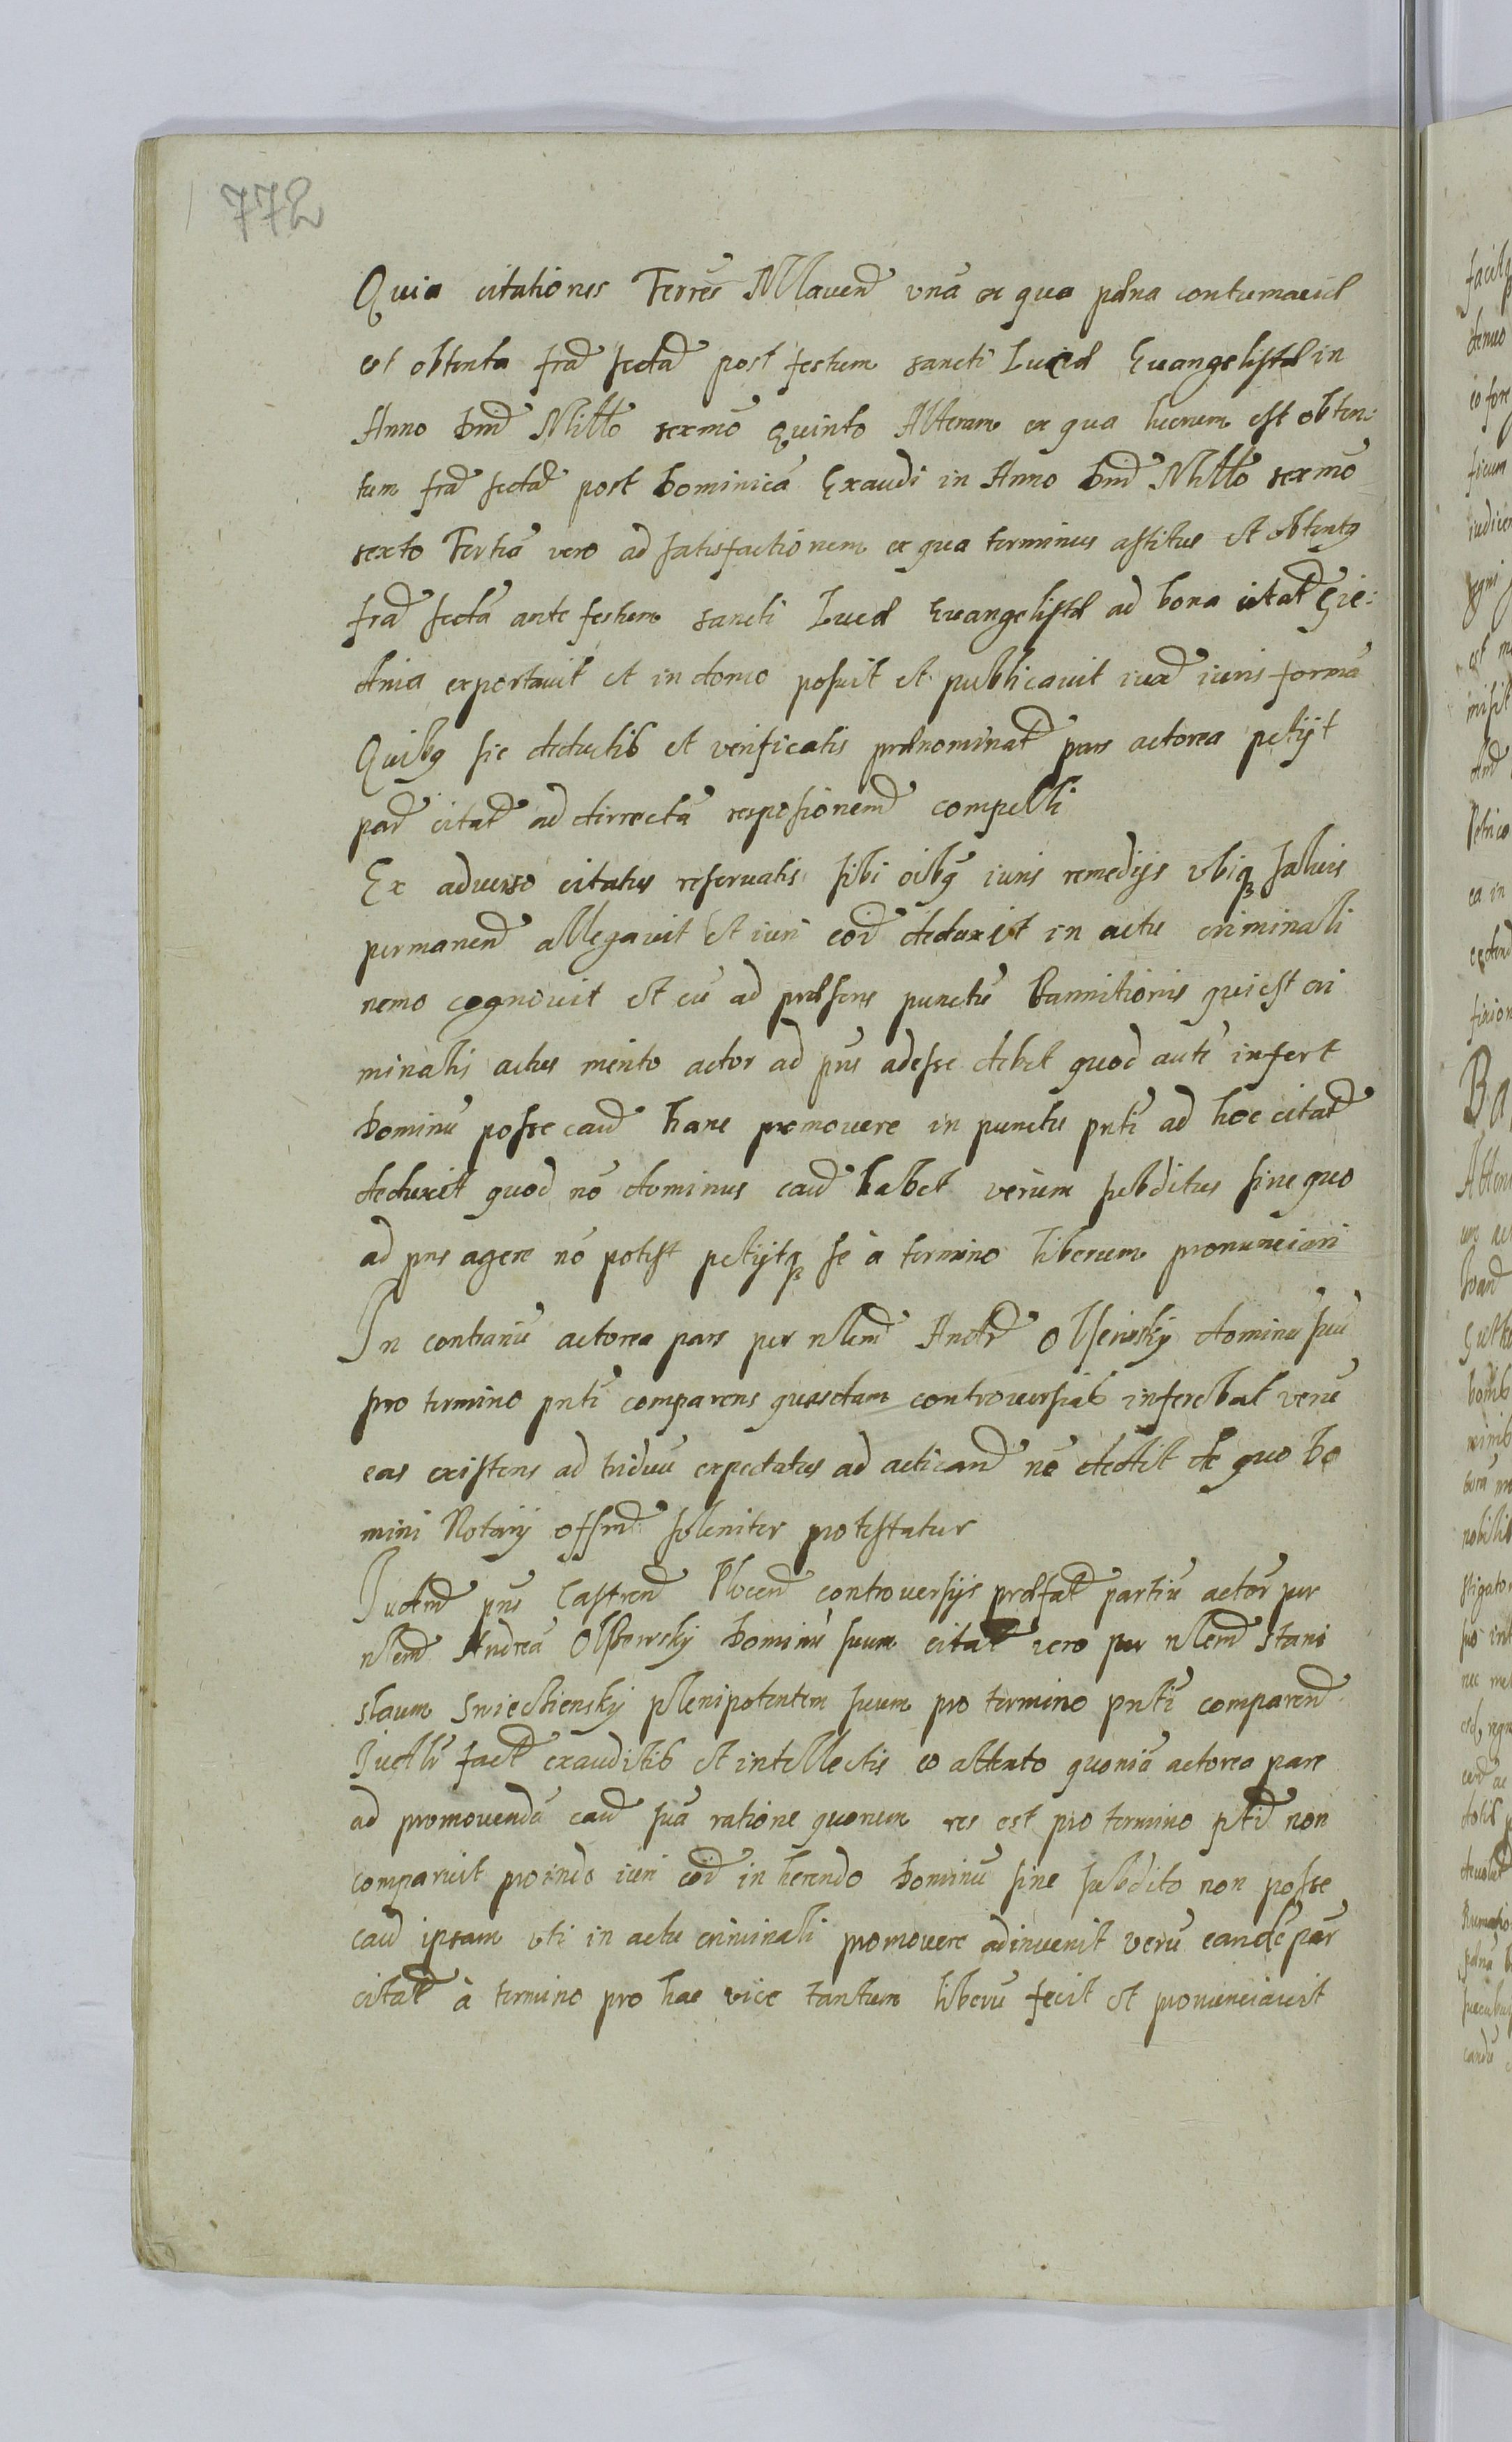 772
Quia citationes Terrēs Mlaueñ vnā ex qua pæna contumaciæ
est obtenta frā sectā post festum sancti Lucæ Euangelistæ in
Anno Dnī Millō sexmō quinto Alteram ex qua lucrum est obten:
tum frā sectā post Dominicā Exaudi in Anno Dnī Millō sexmō
sexto Tertiā vero ad satisfactionem ex qua terminus astitus et obtentq
frā sectā ante festum sancti Lucæ Euangelistæ ad bona citat
dnia exportauit et in domo posuit et publicauit iuxͣ iuris formā
Quibq sic deductis et verificatis prænominat pars actorea petijt
par citat ad directā respōsionem compelli
Ex aduerso citatus reseruatis sibi oibq iuris remedijs vbiq saluis
permaneñ allegauit et iuri eoid deduxit in actu criminali
nemo cognouit et cū ad præsens punctū Bannitionis qui est cri
minalis actus merito actor ad pns adesse debet quod autē infert
Dominū posse caūs hanc promouere in punctu pnti ad hoc citat
deduxit quod nō dominus caūs habet verùm subditus sine quo
ad pns agere nō potest petijtq se à termino liberum pronunciari
In contrariū actorea pars per nlem Andr Olsewsky dominū suū
pro termino pnti comparens quasdam controuersias inferebat verū
eas existens ad triduū expectatus ad acticand nō dedit de quo Do
mini Notarij offm soleniter protestatur
Iudm pns Castreñ Ploceñ controuersijs præfat partiū actor per
nlem Andreā Olszewsky Dominū suum citat vero per nlem Stani
slaum Swiechiensky plenipotentem suum pro termino pnti compareñ
Iudlr fact exauditis et intellectis eo attento quoniā actorea pars
ad promouendā caūs suā ratione quorum res est pro termino ptī non
comparuit proinde iuri eoid in herendo Dominū sine subdito non posse
caūs ipsam vti in actu criminali promouere adinuenit verū eandē par
citat à termino pro hac vice tantum liberū fecit et pronunciauit